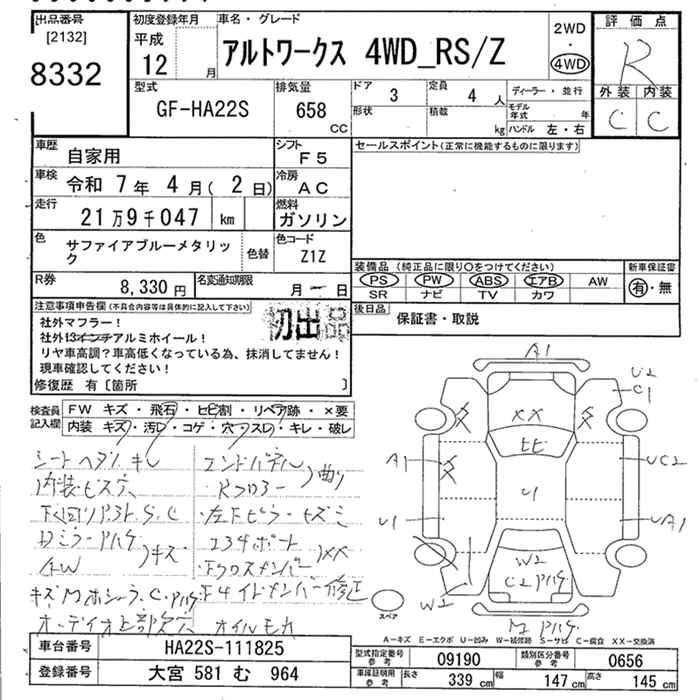 出品番号
[2132]
8332
初度登録年月
平成
12 月
車名・グレード
アルトワークス 4WD_RS/Z
2WD
・
4WD
評価点
R
外装 内装
C C
型式
GF-HA22S
排気量
658
CC
ドア
3
定員
4 人
ディーラー・並行
形状
積載
kg
モデル年式 年
ハンドル 左・右
車歴
自家用
シフト
F5
セールスポイント(正常に機能するものに限ります)
車検
令和 7年 4月( 2日)
冷房
AC
走行
21万9千047 km
燃料
ガソリン
色
サファイアブルーメタリック
色替
色コード
Z1Z
装備品 (純正品に限り○をつけてください)
PS PW ABS エアB AW
SR ナビ TV カワ
新車保証書
有・無
R券
8,330円
名変通知期限
月 日
後日品
保証書・取説
注意事項申告欄(不具合内容等は具体的に記入して下さい)
初出品
社外マフラー!
社外13インチアルミホイール!
リヤ車高調?車高低くなっている為、抹消してません!
現車確認してください!
修復歴 有〔箇所 〕
検査員記入欄
FW キズ・飛石・ヒビ割・リペア跡・×要
内装 キズ・汚レ・コゲ・穴・スレ・キレ・破レ
シートヘタリ キレ
内装ビス欠
下回りアストS.C
ドミラーアハゲ
AW
キズ
オーディオ上部欠
エンドパネル
Rフロアー
曲り
Fクロスメンバー
XX
オイルモレ
A1
U2
C1
XX
ヒビ
A1
UC2
U1
U1
UA1
W2
W2
スペア
A-キズ E-エクボ U-凹み W-補修跡 S-サビ C-腐食 XX-交換済
車台番号
HA22S-111825
登録番号
大宮 581 む 964
型式指定番号
参考
09190
類別区分番号
参考
0656
車庫証明用
参考
長さ 339 cm 幅 147 cm 高さ 145 cm